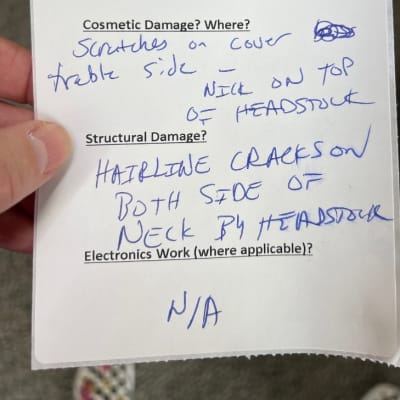 Cosmetic Damage? Where?
Scratches on cover
treble side –
NICK ON TOP
OF HEADSTOCK
Structural Damage?
HAIRLINE CRACKS ON
BOTH SIDE OF
NECK BY HEADSTOCK
Electronics Work (where applicable)?
N/A